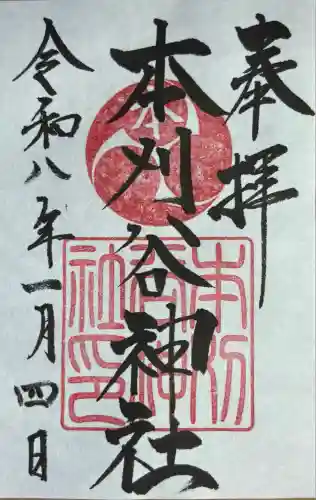 奉拝
本刈谷神社
令和八年一月四日
本刈谷神社印